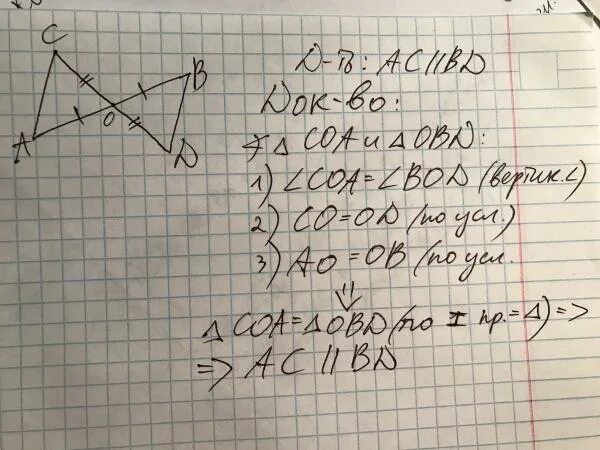 C
B
O
A
D
D-ть: AC || BD
Док-во:
△ COA и △ OBD:
1) ∠COA = ∠BOD (вертик. ∠)
2) CO = OD (по усл.)
3) AO = OB (по усл.
⇓
△ COA = △ OBD (по I пр. = △) =>
=> AC || BD